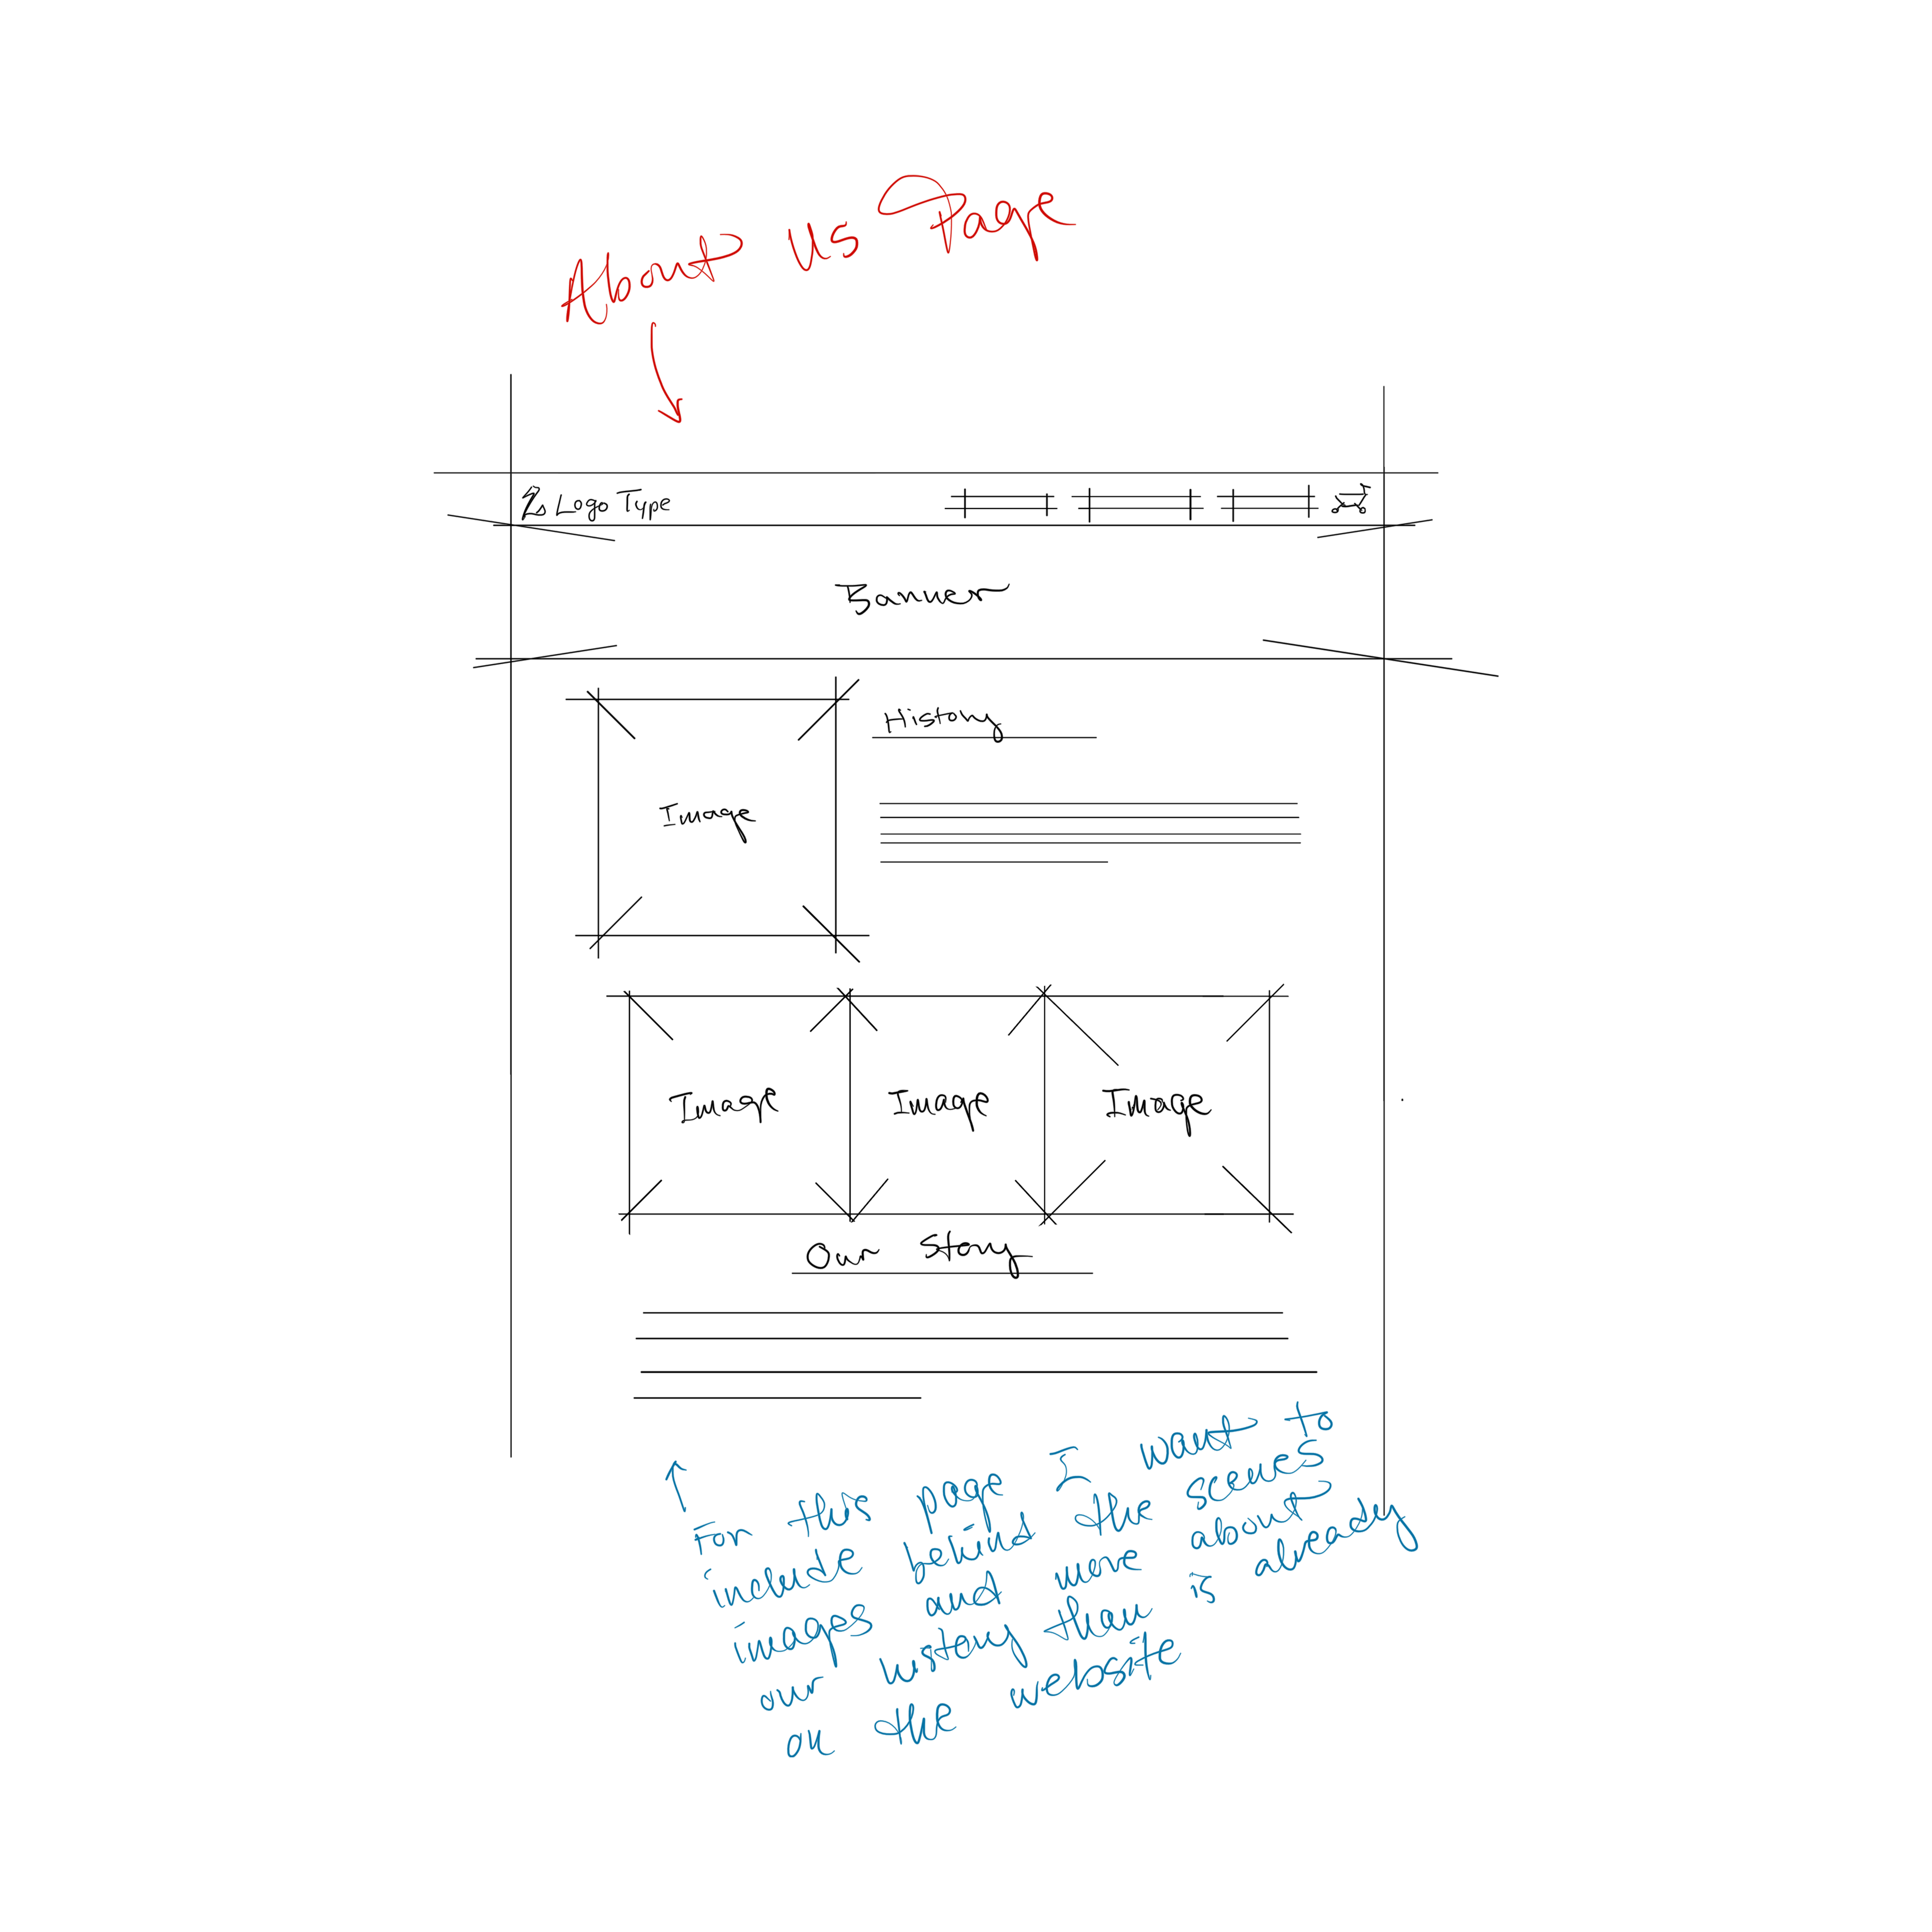 About us Page
Logo Type
Banner
History
Image
Image Image Image
Our Story
For this page I want to
include behind the scenes
images and more about
our history than is already
on the website